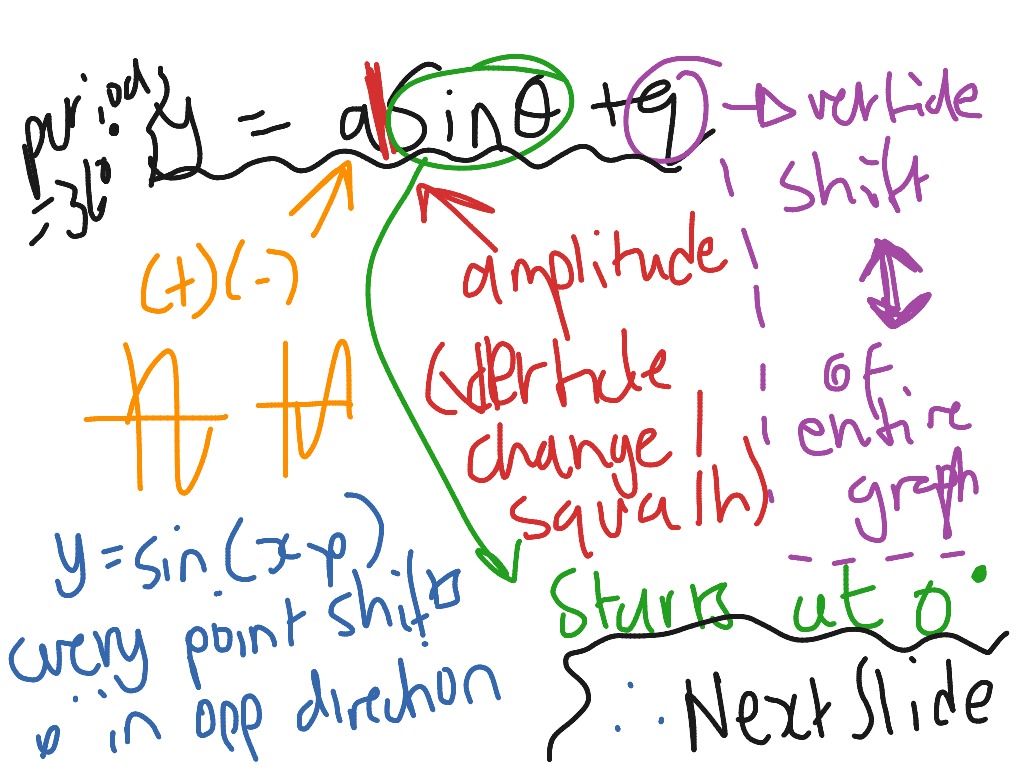 period
= 360
y = a sin θ + q
verticle
shift
of
entire
graph
(+) (-)
amplitude
(verticle
change /
squash)
y = sin (x - p)
every point shifts
in opp direction
Starts at 0°
∴ Next Slide